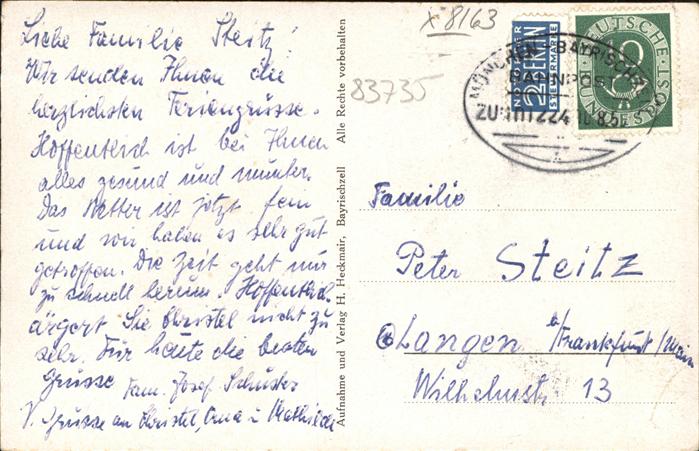 Liebe Familie Steitz!
Wir senden Ihnen die
herzlichsten Feriengrüsse.
Hoffentlich ist bei Ihnen
alles gesund und munter.
Das Wetter ist jetzt fein
und wir haben es sehr gut
getroffen. Die Zeit geht nur
zu schnell herum. Hoffentlich
ärgert Sie Christel nicht zu
sehr. Für heute die besten
Grüsse Fam. Josef Schuster
V. Grüsse an Christel, Oma u. Mathilde
Aufnahme und Verlag H. Heckmair, Bayrischzell Alle Rechte vorbehalten
X 8163
83735
NOTOPFER
2 BERLIN
STEUERMARKE
DEUTSCHE
BUNDESPOST
MÜNCHEN - BAYRISCHZELL
BAHNPOST
ZUG
Familie
Peter Steitz
Langen b/Frankfurt/Main
Wilhelmstr. 13